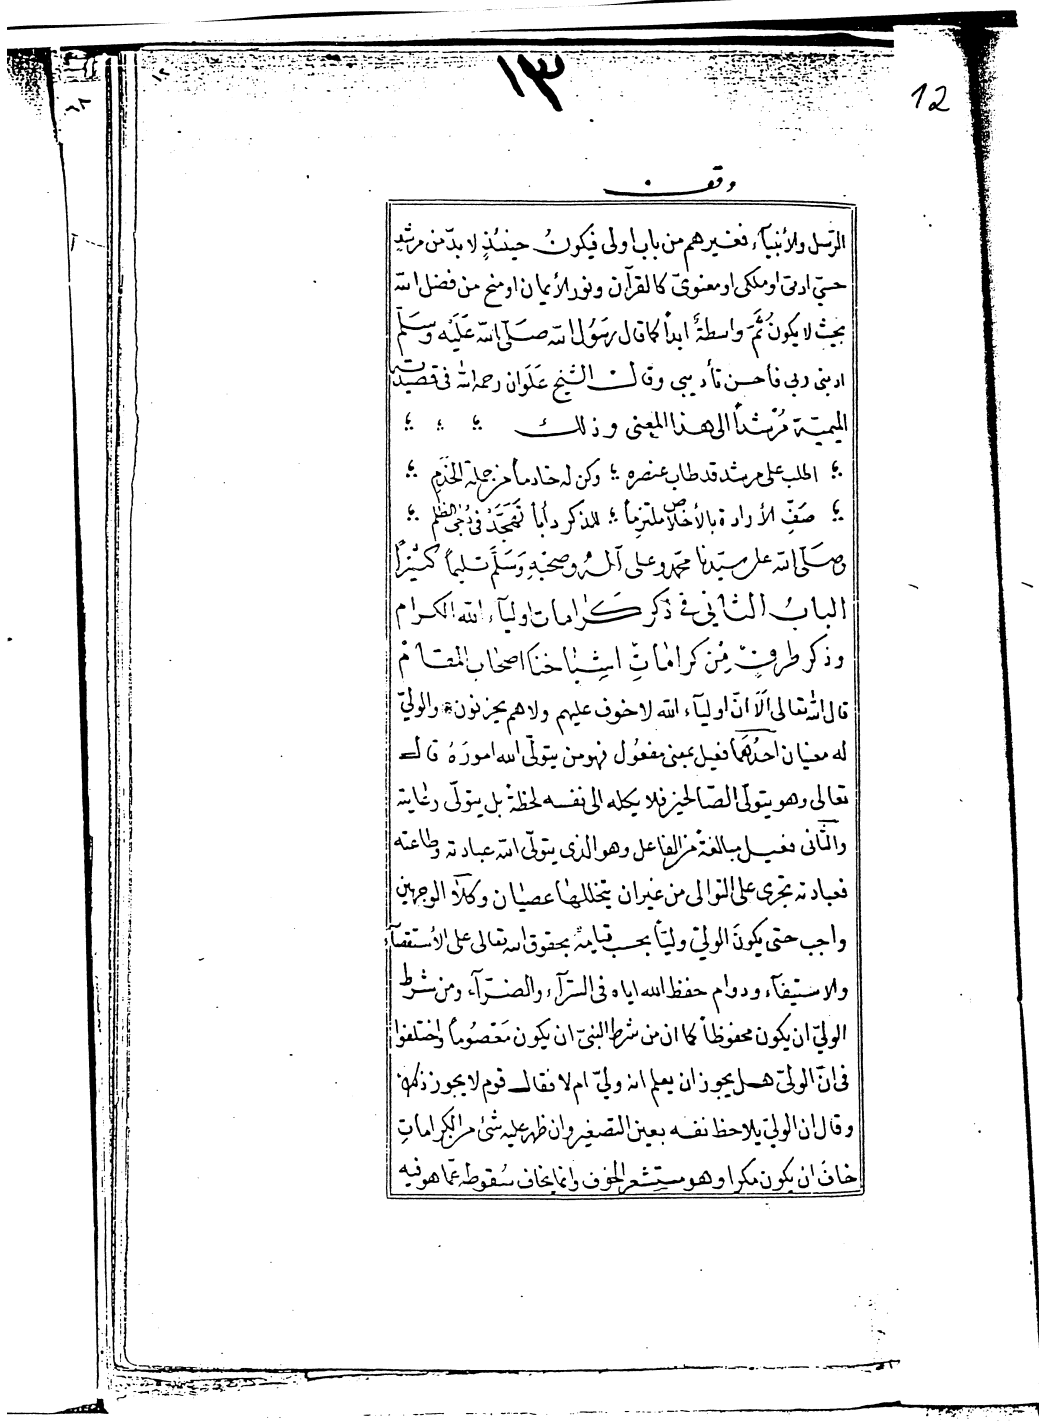 ١٣
12
وقف
المرسل والأنبيآء فغيرهم من باب اولى فيكونُ حينئذٍ لا بدّ من مرشدٍ
حسيّ ادمىّ او ملكى او معنوىّ كالقرآن ونور الأيمان او منح من فضل الله
بحيث لا يكونُ ثَمَّ واسطةٌ ابداً كما قال رسَوُل الله صَلّى الله عَليَه وسَلّم
ادبنى ربى فأحسن تأديبى وقال الشيخ عَلَوان رحمه الله فى قصيدته
الميميّة مُرْشداً الى هذا المعنى وذلك
اطلب على مرشد قد طاب عنصره وكن له خادماً من جملة الخَدَمِ
صَفِّ الأرادة بالأخلاص ملتزماً للذكر دأباً تهَجَّدْ فى دُجَى الظلم
وصَلّى الله على سيّدنا محمّد وعلى آلهُ وصحْبهِ وَسَلَّم تسليماً كثيْراً
البابُ الثانى فى ذكر كَرامات اوليآء الله الكرام
وذكر طرفٍ مِنْ كرامَاتِ اشِيَاخنا اصحَاب المقام
قال الله تعالى اَلَا انّ اوليآء الله لا خوف عليهم ولا هم يحزنون والولىّ
له معنيان احدُهَما فعيل بمعنى مفعُول فهو من يتولّى الله امورَهُ قال
تعالى وهو يتولّى الصّالحين فلا يكله الى نفسه لحظةً بل يتولّى رعَايته
والثّانى فعيل مبالغةً من الفاعل وهو الذى يتولّى الله عبادته وطاعته
فعبادته تجرى على التوالى من غير ان يتخللها عصيان وكلاَ الوجهين
واجب حتى يكونَ الولىّ وليّاً بحسب قيامهُ بحقوق الله تعالى على الأستقصآء
والاستيفآء ودوام حفظ الله اياه فى السّرآء والضرّآء ومن شرط
الولىّ ان يكون محفوظاً كما ان من شرط النبىّ ان يكون مَعْصُوماً واختلفوا
فى انّ الولىّ هل يجوز ان يعلم انه ولىّ ام لا فقال قوم لا يجوز ذلك
وقال ان الولىّ يلاحظ نفسه بعين التصغير وان ظهر عليه شئ من الكرامَاتِ
خافَ ان يكون مكرا وهو مستشعر الخوف وانما يخاف سُقوطه عمّا هو فيه